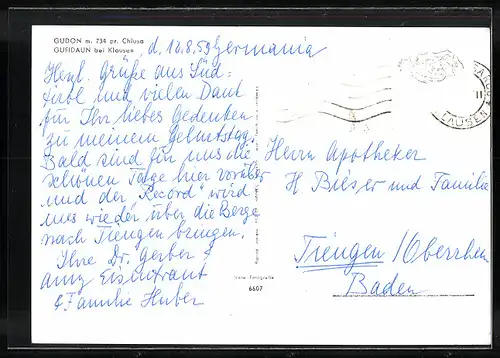 GUDON m. 734 pr. Chiusa
GUFIDAUN bei Klausen
d. 10.8.59 Germania
Herzl. Grüße aus Süd-
tirol und vielen Dank
für Ihr liebes Gedenken
zu meinem Geburtstag.
Bald sind für uns die
schönen Tage hier vorüber
und der „Record" wird
uns wieder über die Berge
nach Tiengen bringen.
Ihre Dr. Gerber &
Amy Eisentraut
& Familie Huber
Herrn Apotheker
H Bieser und Familie
Tiengen / Oberrhein
Baden
Vera Fotografia
6607
LAUSEN